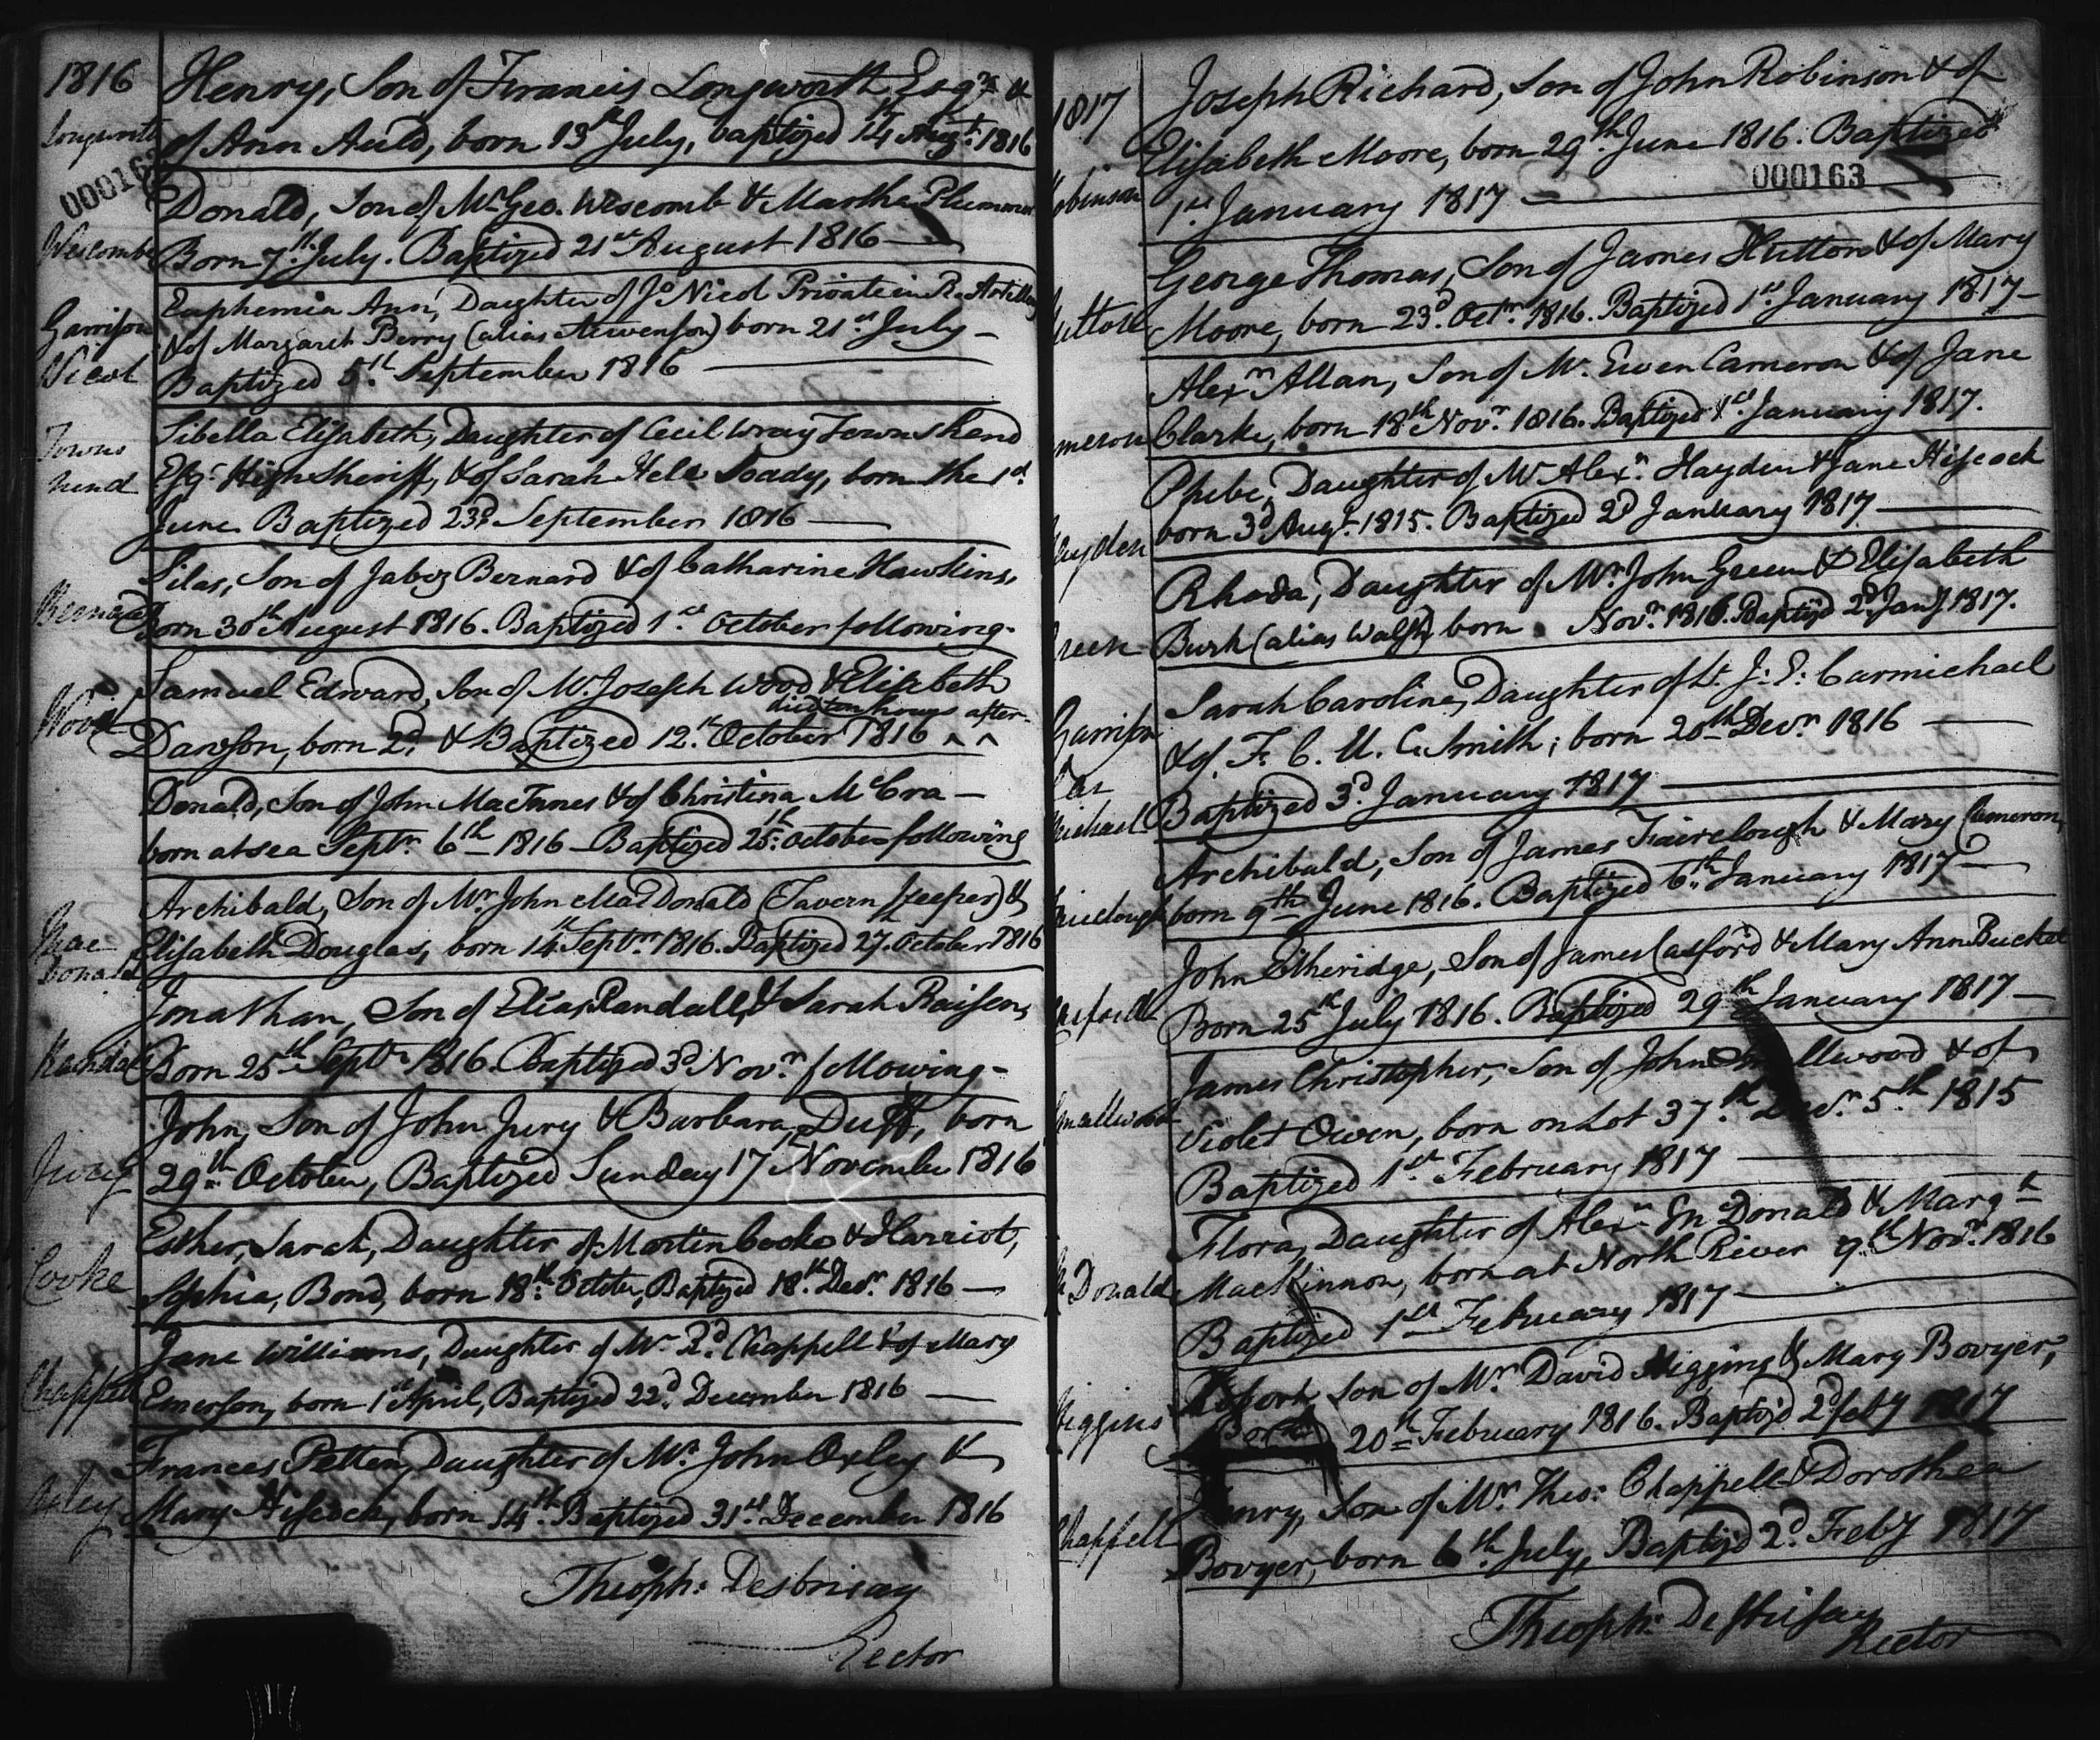 1816
Longworth
Henry, Son of Francis Longworth Esqr. &
of Ann Auld, born 13th July, baptized 14 Augt. 1816
000163
Wescombe
Donald, Son of Mr Geo. Wescomb & Martha Plummer
Born 7th July. Baptized 21st August 1816
Garrison
Nicol
Euphemia Ann, Daughter of Jo Nicol Private in R. Artillery
& of Margaret Berry (alias Stevenson) born 21st July
Baptized 5th September 1816
Towns
hend
Sibella Elisabeth, Daughter of Cecil Wray Townshend
Esqr. High Sheriff, & of Sarah Hele Soady, born the 1st
June Baptized 23d September 1816
Bernard
Silas, Son of Jabez Bernard & of Catharine Hawkins,
born 30th August 1816. Baptized 1st October following.
Wood
Samuel Edward, Son of Mr Joseph Wood & Elizabeth
hours after
Dawson, born 2d & Baptized 12th October 1816 ^ ^
Donald, Son of John MacInnes & of Christina McCra
born at sea Septr. 6th 1816 Baptized 25th October following
Mac
Donald
Archibald, Son of Mr. John MacDonald (Tavern Keeper) &
Elisabeth Douglas, born 14th Septr. 1816. Baptized 27th October 1816
Randall
Jonathan, Son of Elias Randall, & Sarah Raisen,
Born 25th Septr 1816. Baptized 3d Novr. following
Jury
John, Son of John Jury & Barbara Duff, born
29th October, Baptized Sunday 17 November 1816
Cooke
Esther, Sarah, Daughter of Martin Cooke & Harriot,
Sophia, Bond, born 18th October, Baptized 18th Decr. 1816
Chappell
Jane Williams, Daughter of Mr. Rd. Chappell & of Mary
Emerson, born 1st April, Baptized 22d December 1816
Oxley
Frances Petten, Daughter of Mr. John Oxley &
Mary Hiscock, born 14th Baptized 31st December 1816
Theoph: Desbrisay
Rector
1817
Robinson
Joseph Richard, Son of John Robinson & of
Elisabeth Moore, born 29th June 1816. Baptized
000163
1st January 1817
Hutton
George Thomas, Son of James Hutton & of Mary
Moore, born 23d Octr. 1816. Baptized 1st January 1817
Cameron
Alexr Allan, Son of Mr. Ewen Cameron & of Jane
Clarke, born 18th Novr. 1816. Baptized 1st January 1817.
Hayden
Phebe, Daughter of Mr Alexr. Hayden & Jane Hiscock
born 3d Augt. 1815. Baptized 2d January 1817
Green
Rhoda, Daughter of Mr John Green & Elisabeth
Burk (alias Walsh) born Novr. 1816. Baptizd 2d Jany 1817.
Garrison
Car
michael
Sarah Caroline, Daughter of Lt. J: E: Carmichael
& of F. C. M. C. Smith; born 20th Decr. 1816
Baptized 3d January 1817
Fairclough
Archibald, Son of James Fairclough & Mary Cameron,
born 9th June 1816. Baptized 6th January 1817
John Etheridge, Son of James Casford & Mary Ann Bucket
Born 25th July 1816. Baptized 29th January 1817
Smallwood
James Christopher, Son of John Smallwood & of
Violet Owen, born on Lot 37th Decr. 5th 1815
Baptized 1st February 1817
McDonald
Flora, Daughter of Alexr. McDonald & Margt
MacKinnon, born at North River 9th Novr. 1816
Baptized 1st February 1817
Higgins
Son of Mr. David Higgins & Mary Bovyer,
Born 20th February 1816. Baptizd 2d Feby 1817
Chappell
Henry, Son of Mr. Theo: Chappell & Dorothea
Bovyer, born 6th July, Baptizd 2d Feby 1817
Theoph: DesBrisay
Rector